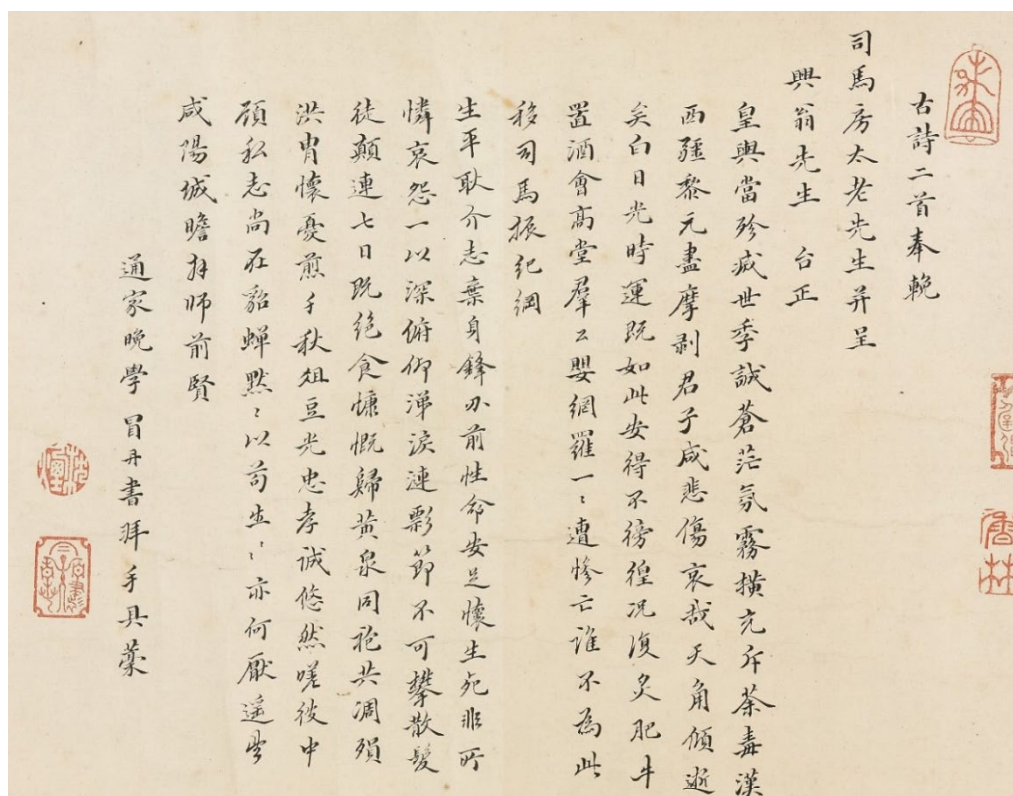 古詩二首奉輓
司馬房太老先生并呈
興翁先生 台正
皇輿當殄滅世季誠蒼茫氛霧橫充斥荼毒漢
西疆黎元盡摩剥君子咸悲傷哀哉天角傾逝
矣白日光時運既如此安得不徬徨況復炙肥牛
置酒會高堂羣公嬰網羅一〻遭慘亡誰不為此
移司馬振紀綱
生平耿介志棄身鋒刃前性命安足懷生死非所
憐哀怨一以深俯仰涕淚漣彭節不可攀散髮
徒顛連七日既絕食慷慨歸黃泉同袍共凋殞
洪胄懷憂煎千秋俎豆光忠孝誠悠然嗟彼中
頎私志尚在貂蟬默〻以苟生〻亦何厭遥望
咸陽城瞻拜師前賢
通家晚學冒丹書拜手具藁